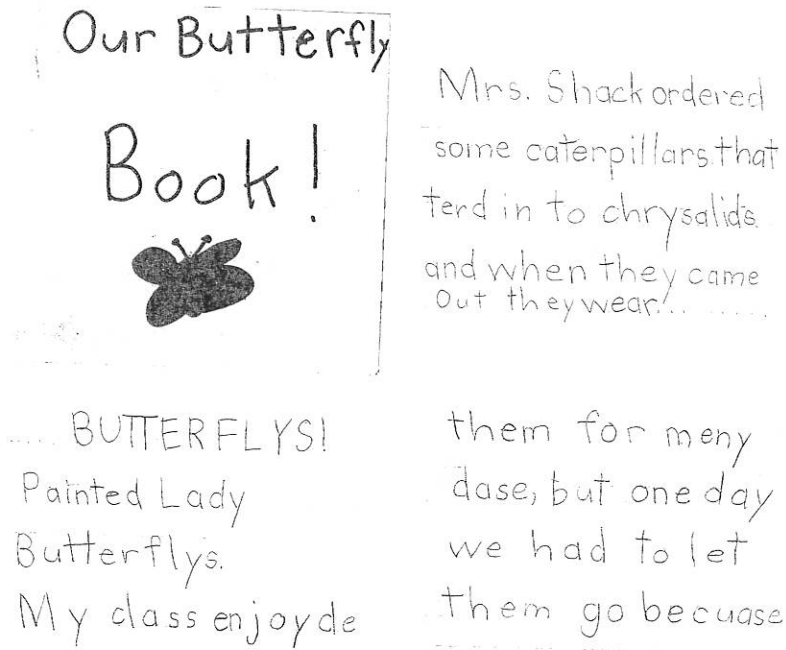 Our Butterfly
Book!
Mrs. Shack ordered
some caterpillars that
terd in to chrysalids
and when they came
out they wear!........
..... BUTTERFLYS!
Painted Lady
Butterflys.
My class enjoyde
them for meny
dase, but one day
we had to let
them go becuase